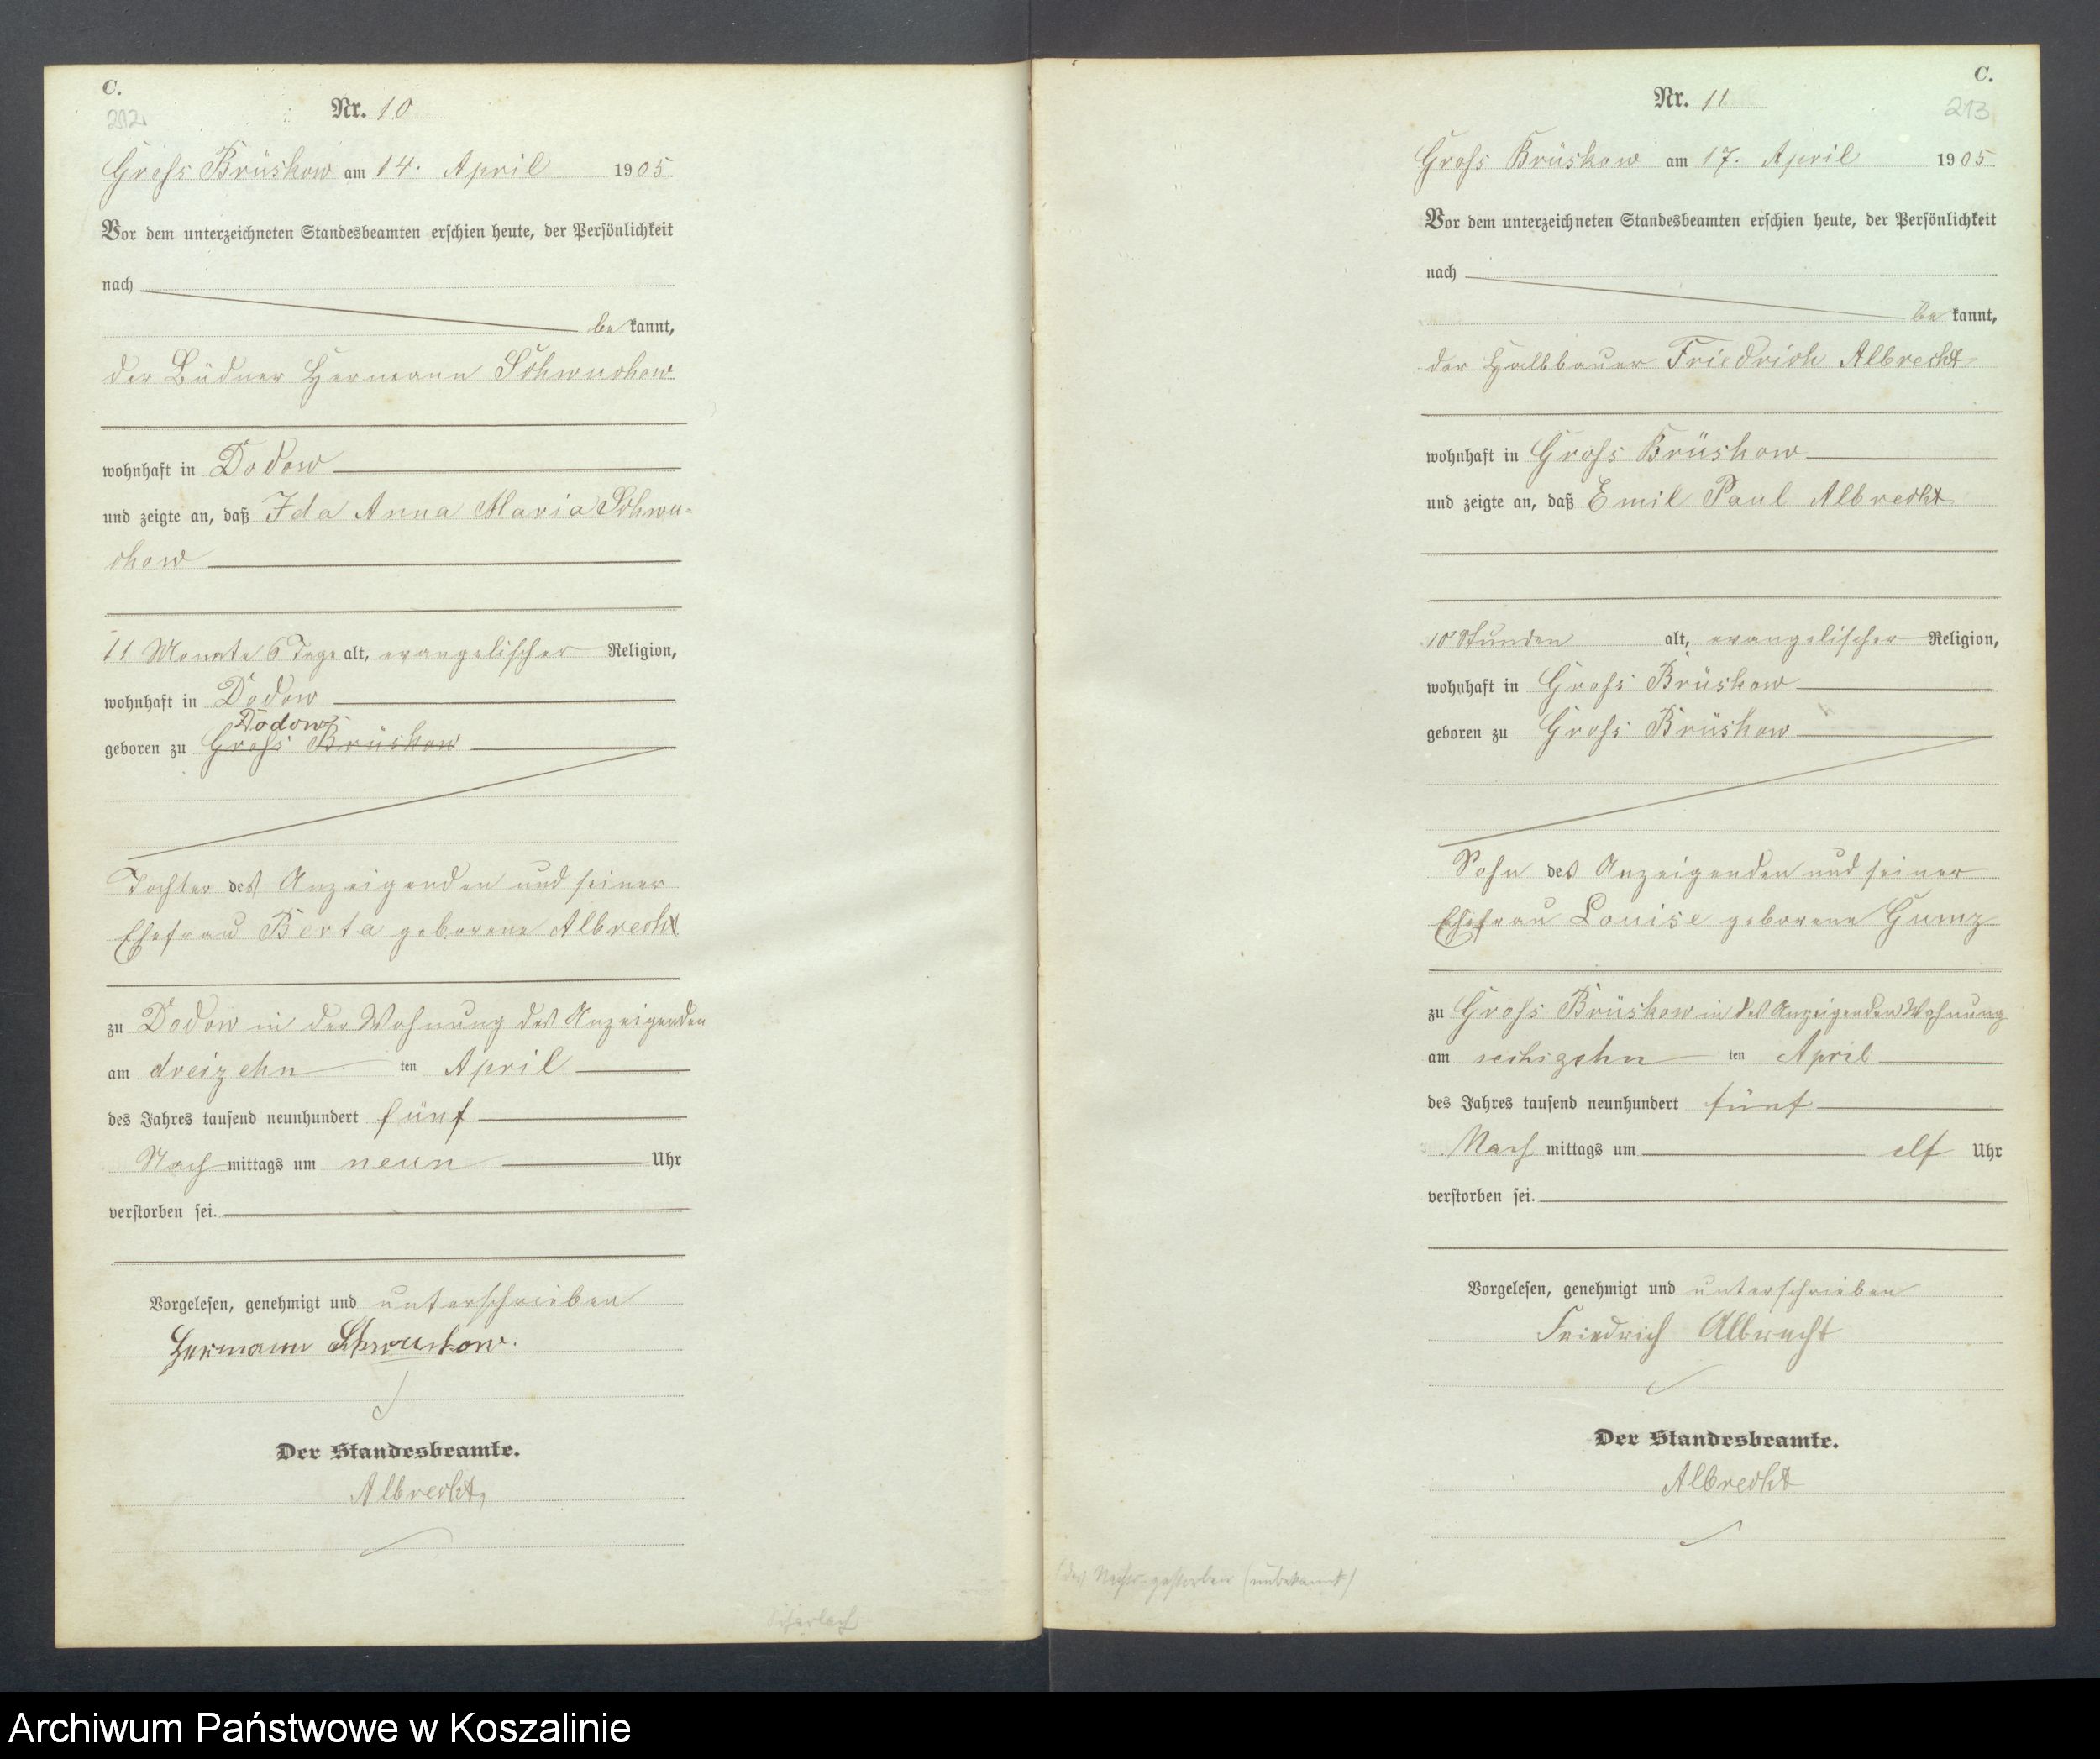 C.
212.
Nr. 10
Groß Brüskow am 14. April 1905.
Vor dem unterzeichneten Standesbeamten erschien heute, der Persönlichkeit
nach
be kannt,
der Büdner Hermann Schwuchow
wohnhaft in Dodow
und zeigte an, daß Ida Anna Maria Schwu-
chow
11 Monate 6 Tage alt, evangelischer Religion,
wohnhaft in Dodow
Dodow
geboren zu Groß Brüskow
Tochter des Anzeigenden und seiner
Ehefrau Berta geborene Albrecht
zu Dodow in der Wohnung des Anzeigenden
am dreizehn ten April
des Jahres tausend neunhundert fünf
Nach mittags um neun Uhr
verstorben sei.
Vorgelesen, genehmigt und unterschrieben
Hermann Schwuchow.
Der Standesbeamte.
Albrecht,
C.
213
Nr. 11
Groß Brüskow am 17. April 1905
Vor dem unterzeichneten Standesbeamten erschien heute, der Persönlichkeit
nach
be kannt,
der Halbbauer Friedrich Albrecht
wohnhaft in Groß Brüskow
und zeigte an, daß Emil Paul Albrecht
10 Stunden alt, evangelischer Religion,
wohnhaft in Groß Brüskow
geboren zu Groß Brüskow
Sohn des Anzeigenden und seiner
Ehefrau Louise geborene Gumz
zu Groß Brüskow in des Anzeigenden Wohnung
am sechszehn ten April
des Jahres tausend neunhundert fünf
Nach mittags um elf Uhr
verstorben sei.
Vorgelesen, genehmigt und unterschrieben
Friedrich Albrecht
Der Standesbeamte.
Albrecht
(unbekannt)
Archiwum Państwowe w Koszalinie